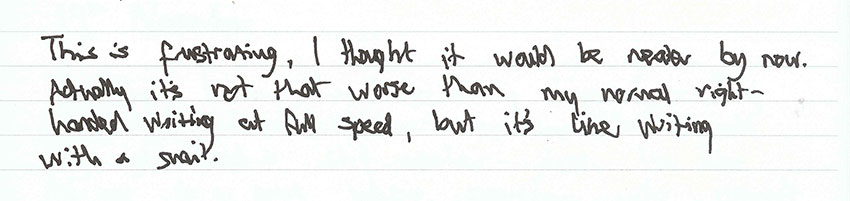 This is frustrating, I thought it would be neater by now.
Actually it's not that worse than my normal right-
handed writing at full speed, but it's like writing
with a snail.